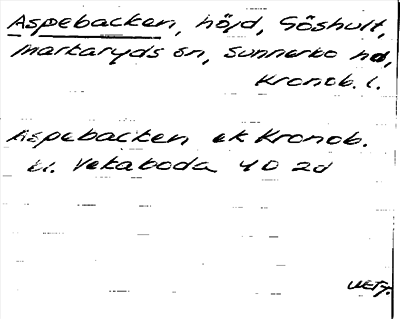 Aspebacken, höjd, Göshult,
Markaryds sn, Sunnerbo hd,
Kronob. l.
Aspebacken ek Kronob.
bl. Vekaboda 4D 2d